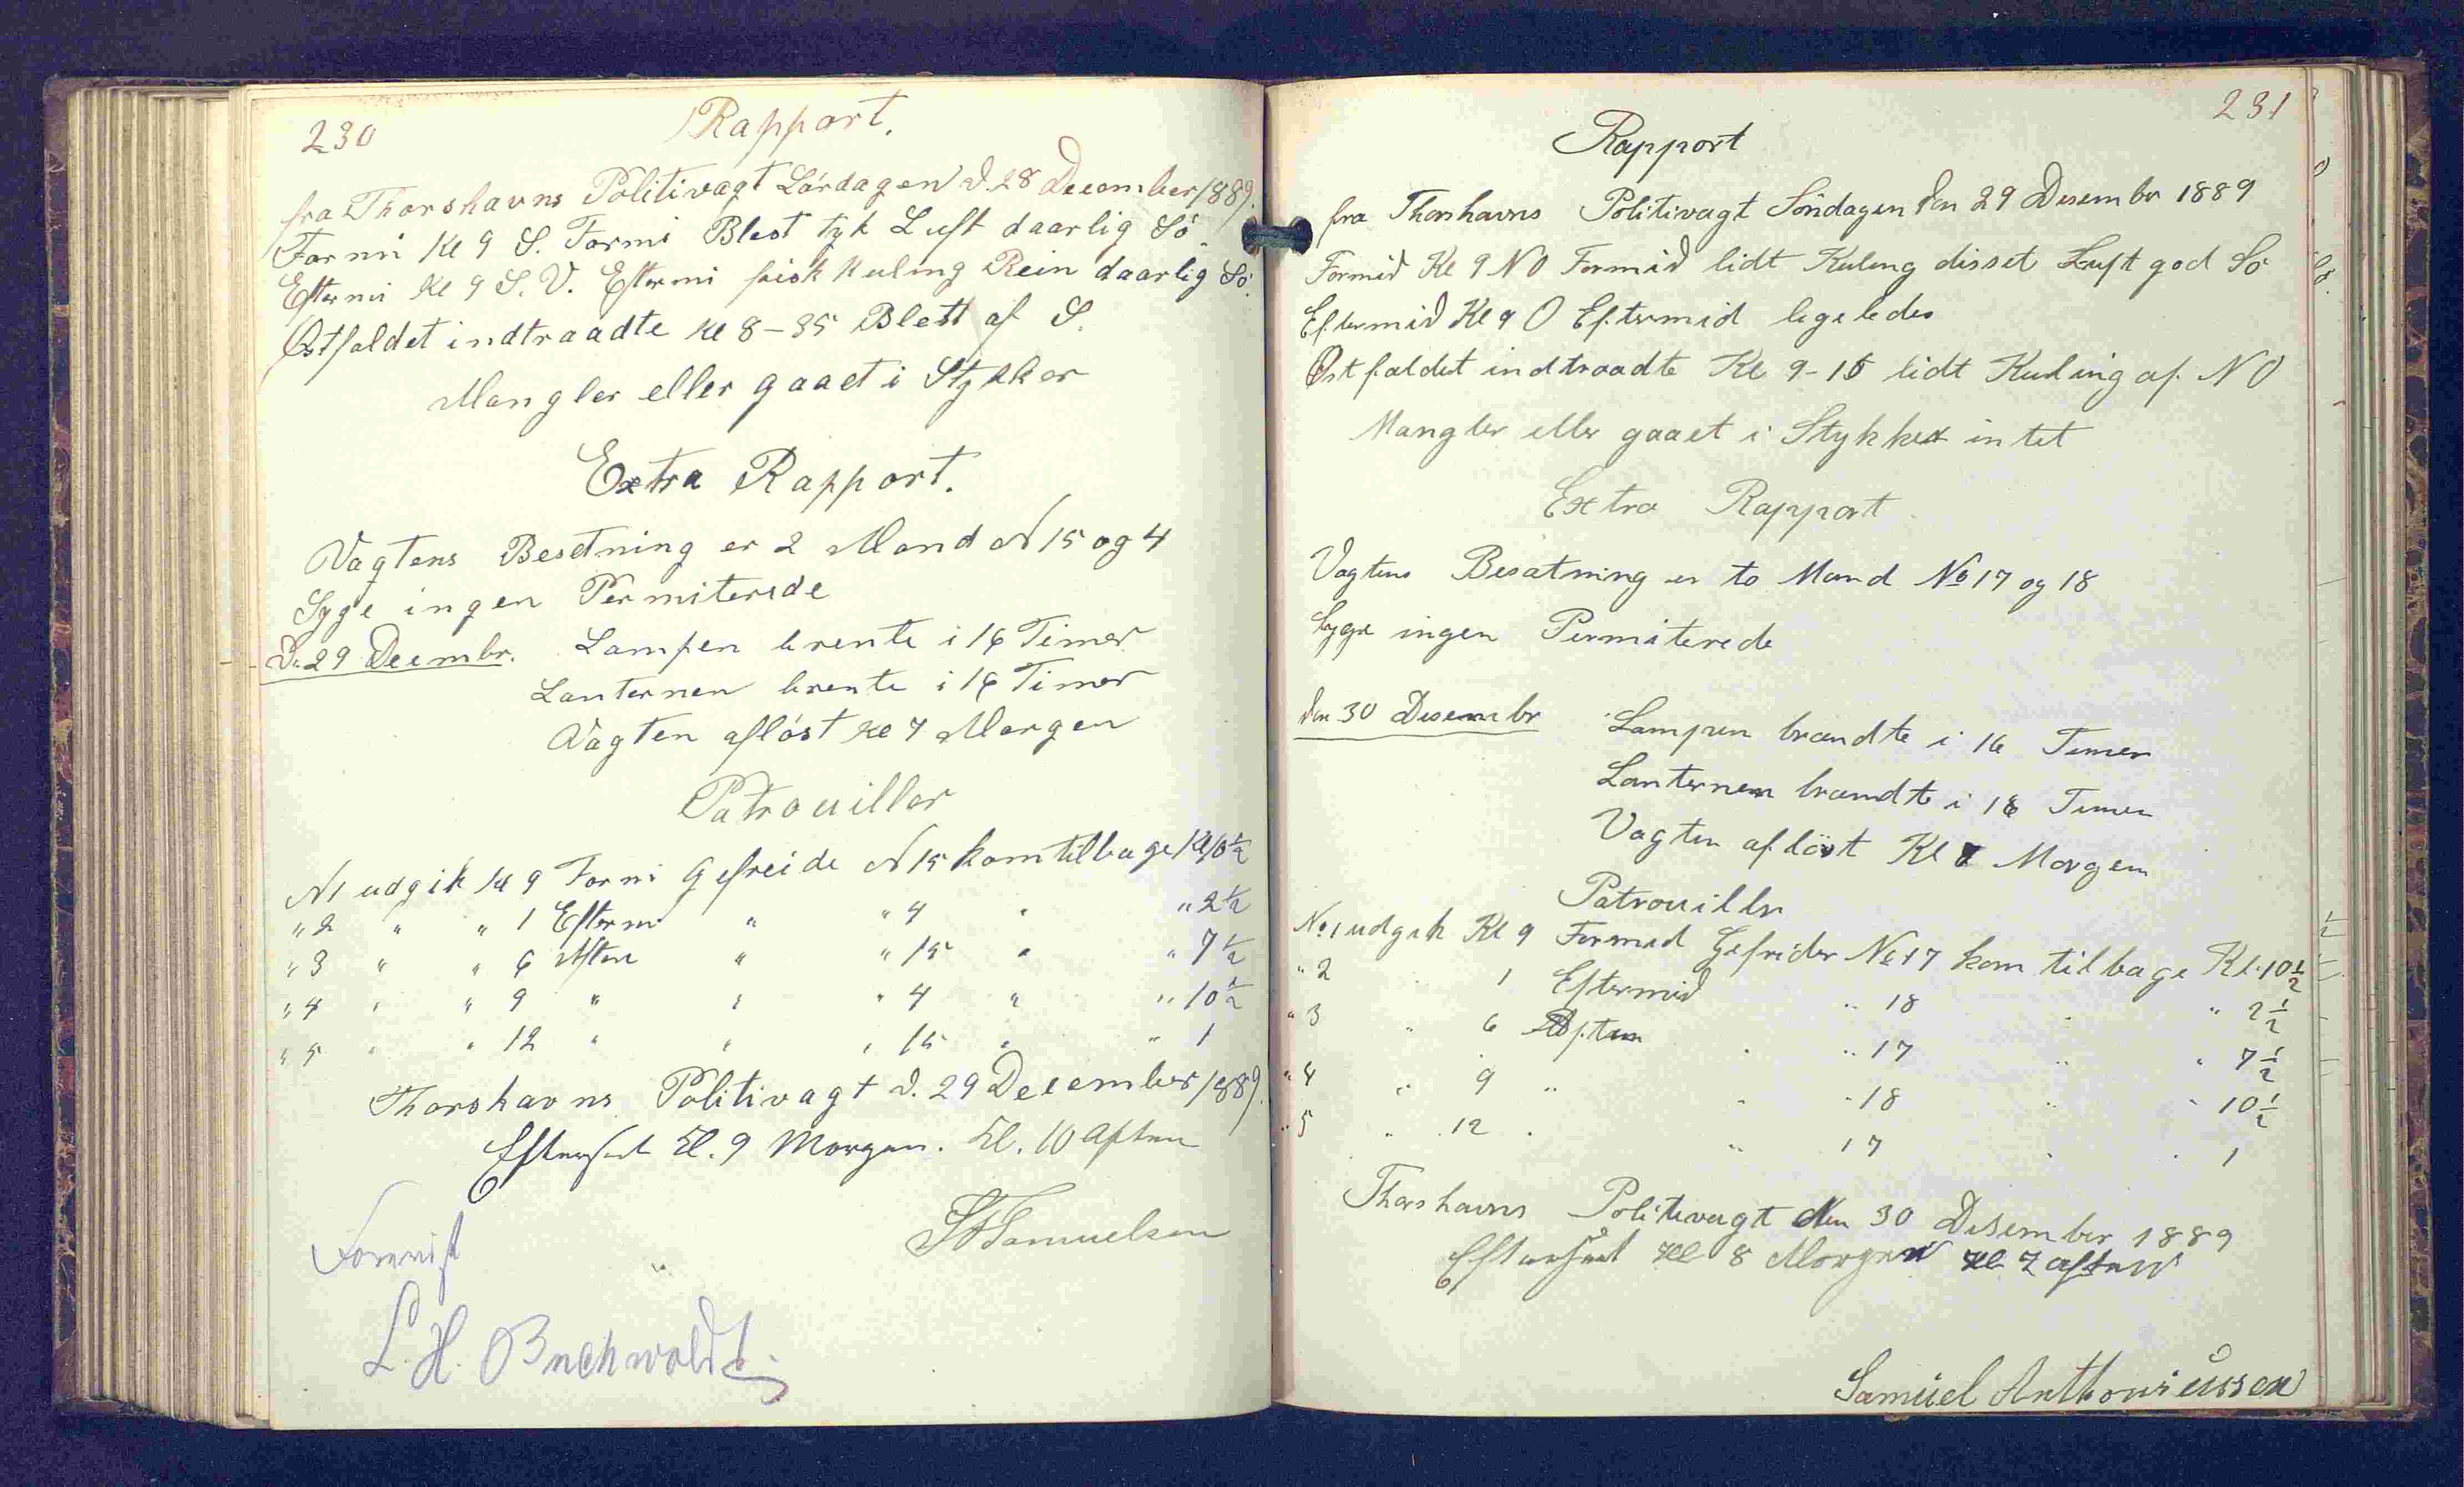 230
Rapport.
fra Thorshavns Politivagt Lördagen d. 28 December 1889.
Formi Kl 9 S. Formi Blest tyk Luft daarlig Sö.
Eftermi Kl 9 S. V. Eftermi frisk Kuling Rein daarlig Sö.
Østfaldet indtraadte kl 8-35 Blest af S.
Mangler eller gaaet i Stykker
Extra Rapport.
Vagtens Besetning er 2 Mand N 15 og 4
Syge ingen Permiterede
D. 29 Decembr. Lampen brente i 16 Timer
Lanternen brente i 16 Timer
Vagten aflöst kl 7 Morgen
Patrouiller
N1 udgik kl 9 Formi Gefreide N 15 kom tilbage Kl 10 1/2
" 2 " " 1 Efterm " " 4 " " 2 1/2
" 3 " " 6 Aften " " 15 " " 7 1/2
" 4 " " 9 " " " 4 " " 10 1/2
" 5 " " 12 " " " 15 " " 1
Thorshavns Politivagt d. 29 December 1889.
Efterseet Kl. 9 Morgen. Kl. 10 Aften
S Samuelsen
Forevist
L. H. Buchwaldt
231
Rapport
fra Thorshavns Politivagt Söndagen den 29 Desember 1889
Formid Kl 9 NO Formid lidt Kuling disset Luft god Sö
Eftermid Kl 9 O Eftermid ligeledes
Østfaldet indtraadte Kl 9-15 lidt Kuling af NO
Mangler eller gaaet i Stykker intet
Extra Rapport
Vagtens Besatning er to Mand No 17 og 18
Syge ingen Permiterede
den 30 Desembr Lampen brandte i 16 Timer
Lanternen brandte i 16 Timer
Vagten aflöst Kl 7 Morgen
Patrouiller
No 1 udgik Kl 9 Formid Gefrider No 17 kom tilbage Kl. 10 1/2
" 2 " 1 Eftermid " 18 " " 2 1/2
" 3 " 6 Aften " " 17 " " 7 1/2
" 4 " 9 " " " 18 " " 10 1/2
" 5 " 12 " " 17 " " 1
Thorshavns Politivagt den 30 Desember 1889
Efterseet Kl 8 Morgen Kl 7 aften
Samuel Anthoniussen